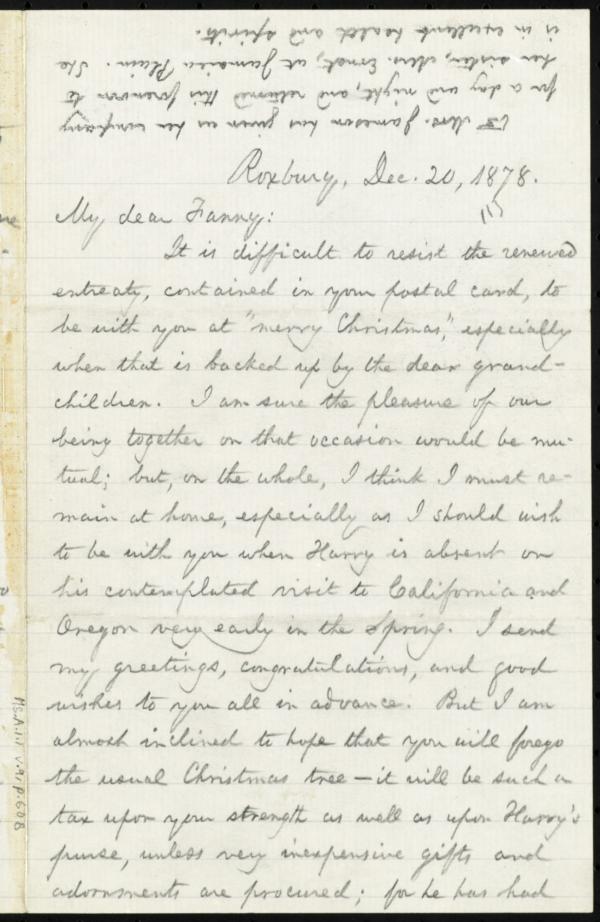 ☞ Mrs. Jameson has given us her company
for a day and night, and returned this forenoon to
her sister, Mrs. Ernst, at Jamaica Plain. She
is in excellent health and spirits.
Roxbury, Dec. 20, 1878.
My dear Fanny:
It is difficult to resist the renewed
entreaty, contained in your postal card, to
be with you at "merry Christmas," especially
when that is backed up by the dear grand-
children. I am sure the pleasure of our
being together on that occasion would be mu-
tual; but, on the whole, I think I must re-
main at home, especially as I should wish
to be with you when Harry is absent on
his contemplated visit to California and
Oregon very early in the Spring. I send
my greetings, congratulations, and good
wishes to you all in advance. But I am
almost inclined to hope that you will forego
the usual Christmas tree — it will be such a
tax upon your strength as well as upon Harry's
purse, unless very inexpensive gifts and
adornments are procured; for he has had
Ms.A.1.1 v.9, p.60B